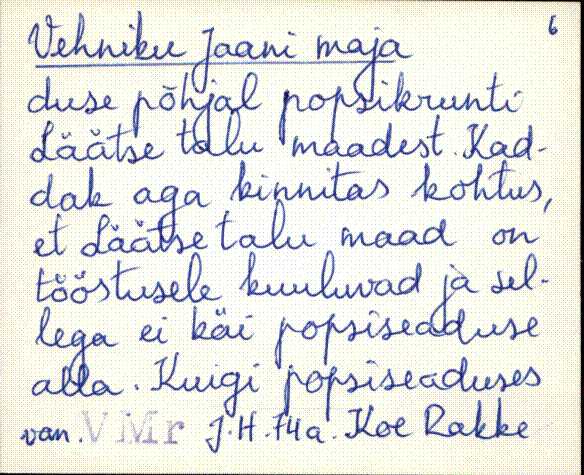 6
Vehniku Jaani maja
duse põhjal popsikrunti
Läätse talu maadest. Kad-
dak aga kinnitas kohtus,
et Läätse talu maad on
tööstusele kuuluvad ja sel-
lega ei käi popsiseaduse
alla. Kuigi popsiseaduses
van. VMr J.H. 74a. Koe Rakke